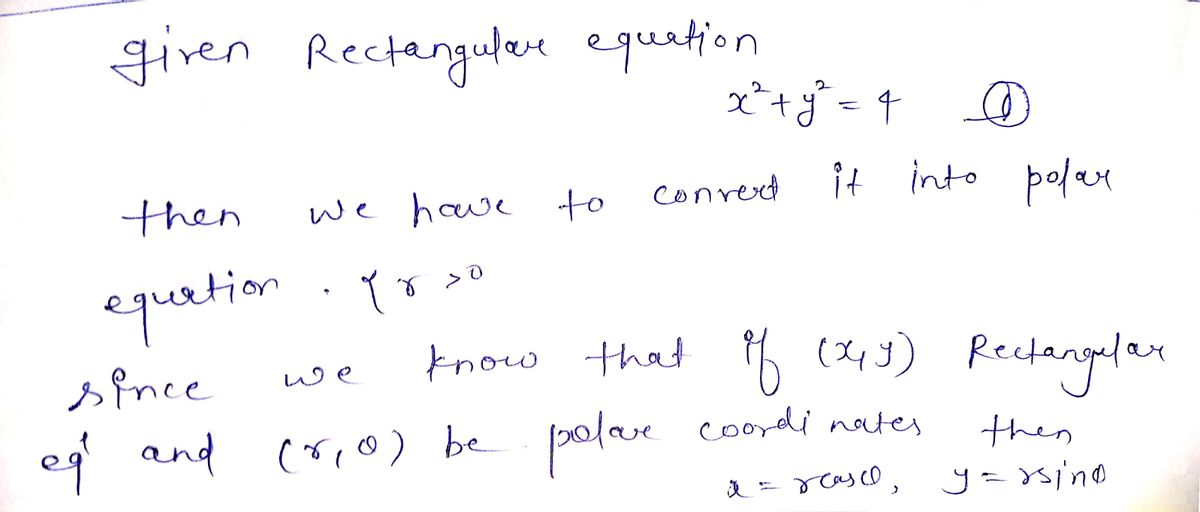 given Rectangular equation
x²+y² = 4 ①
then we have to convert it into polar
equation . & r >0
since we know that if (x, y) Rectangular
eqⁿ and (r, θ) be polar coordinates then
x = rcosθ, y = rsinθ